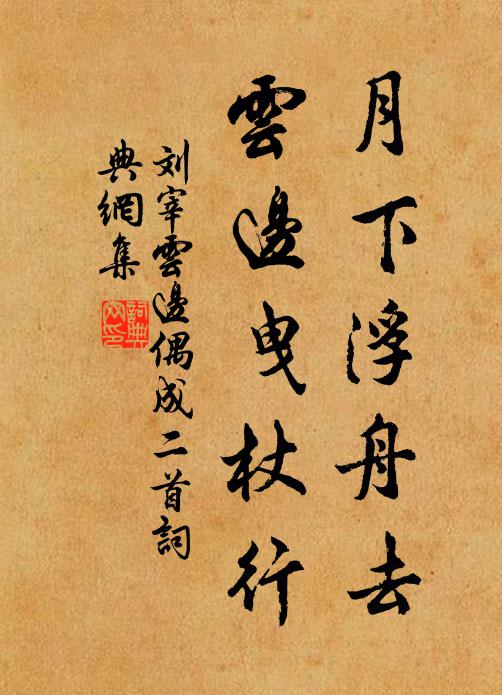 月下浮舟去
雲邊曳杖行
刘宰雲邊偶成二首詞
典網集
詞典
网印